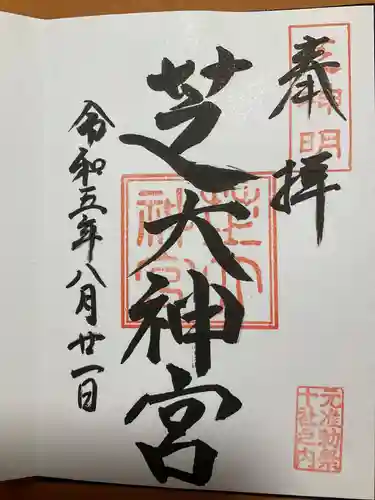 奉拝
芝大神宮
令和五年八月廿一日
芝大神宮
元准勅祭
十社之内